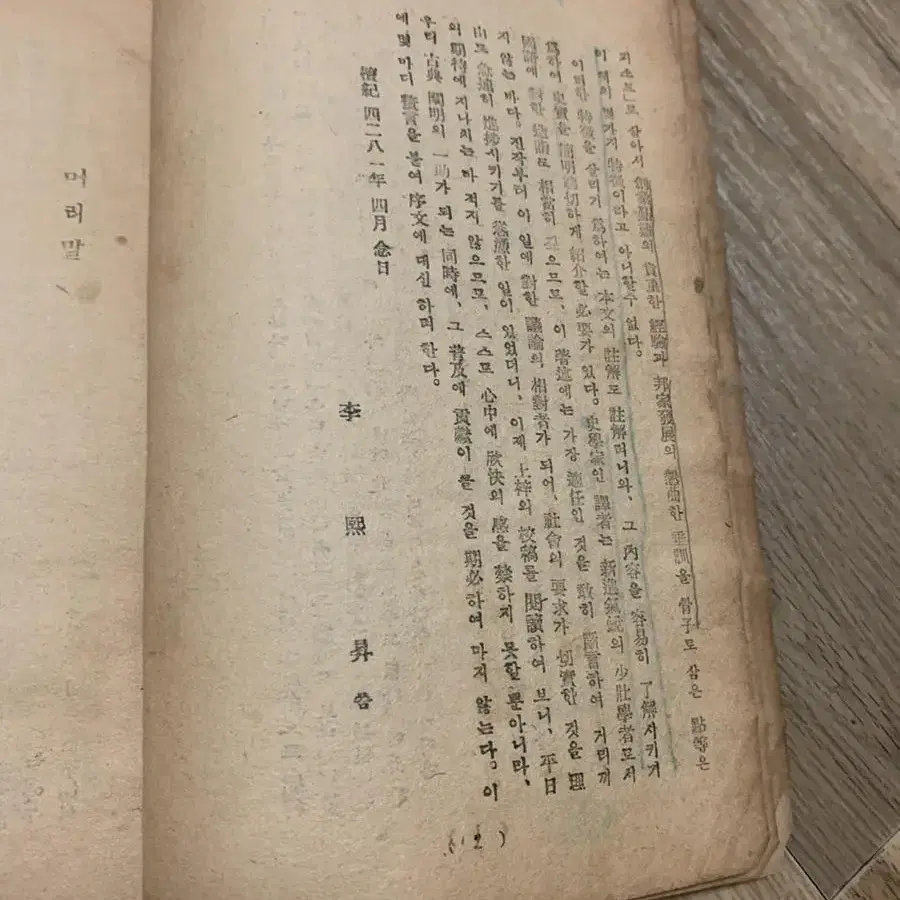 로 잡아서 創業艱難의 貴重한 經驗과 邦家發展의 懇曲한 垂訓을 骨子로 삼은 點等은
이 책의 몇가지 特徵이라고 아니할수 없다。
이러한 特徵을 살리기 爲하여는 本文의 註解도 註解려니와, 그 內容을 容易히 了解시키기
爲하여 史實을 簡明適切하게 紹介할 必要가 있다。史學家인 譯者는 新進氣銳의 少壯學者로서
國語에 對한 造詣도 相當히 깊으므로, 이 著述에는 가장 適任인 것을 敢히 直言하여 거리끼
지 않는 바다。진작부터 이 일에 對한 議論의 相對者가 되어, 社會의 要求가 切實한 것을 理
由로 急速히 進捗시키기를 慫慂한 일이 있었더니, 이제 上梓의 校稿를 閱讀하여 보니, 平日
의 期待에 지나치는 바 적지 않으므로, 스스로 心中에 欣快의 感을 禁하지 못할 뿐아니라,
우리 古典 闡明의 一助가 되는 同時에, 그 普及에 貢獻이 클 것을 期必하여 마지 않는다。이
에 몇 마디 贅言을 붙여 序文에 대신 하려 한다。
檀紀 四二八一年 四月 念日
李熙昇 씀
( 2 )
머리말